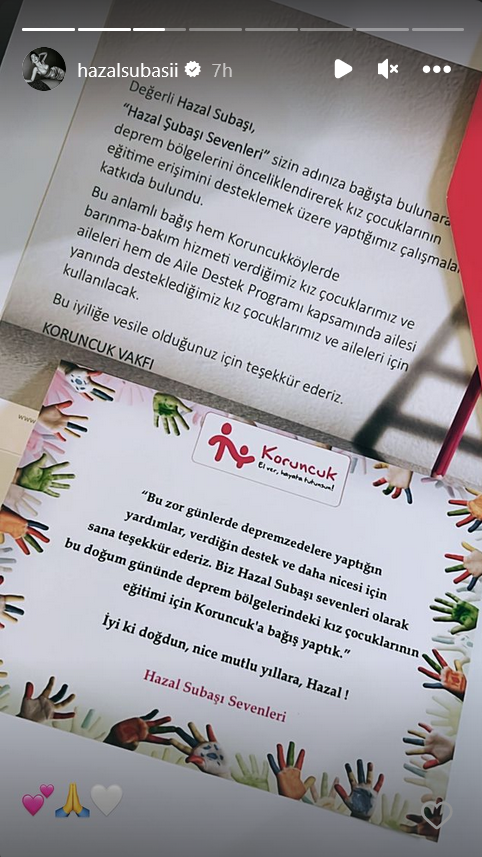 hazalsubasii 7h
Değerli Hazal Subaşı,
"Hazal Şubaşı Sevenleri" sizin adınıza bağışta bulunara
deprem bölgelerini önceliklendirerek kız çocuklarının
eğitime erişimini desteklemek üzere yaptığımız çalışmala
katkıda bulundu.
Bu anlamlı bağış hem Koruncukköylerde
barınma-bakım hizmeti verdiğimiz kız çocuklarımız ve
aileleri hem de Aile Destek Programı kapsamında ailesi
yanında desteklediğimiz kız çocuklarımız ve aileleri için
kullanılacak.
Bu iyiliğe vesile olduğunuz için teşekkür ederiz.
KORUNCUK VAKFI
www.
Koruncuk
El ver, hayata tutunsun!
"Bu zor günlerde depremzedelere yaptığın
yardımlar, verdiğin destek ve daha nicesi için
sana teşekkür ederiz. Biz Hazal Subaşı sevenleri olarak
bu doğum gününde deprem bölgelerindeki kız çocuklarının
eğitimi için Koruncuk'a bağış yaptık."
İyi ki doğdun, nice mutlu yıllara, Hazal !
Hazal Subaşı Sevenleri